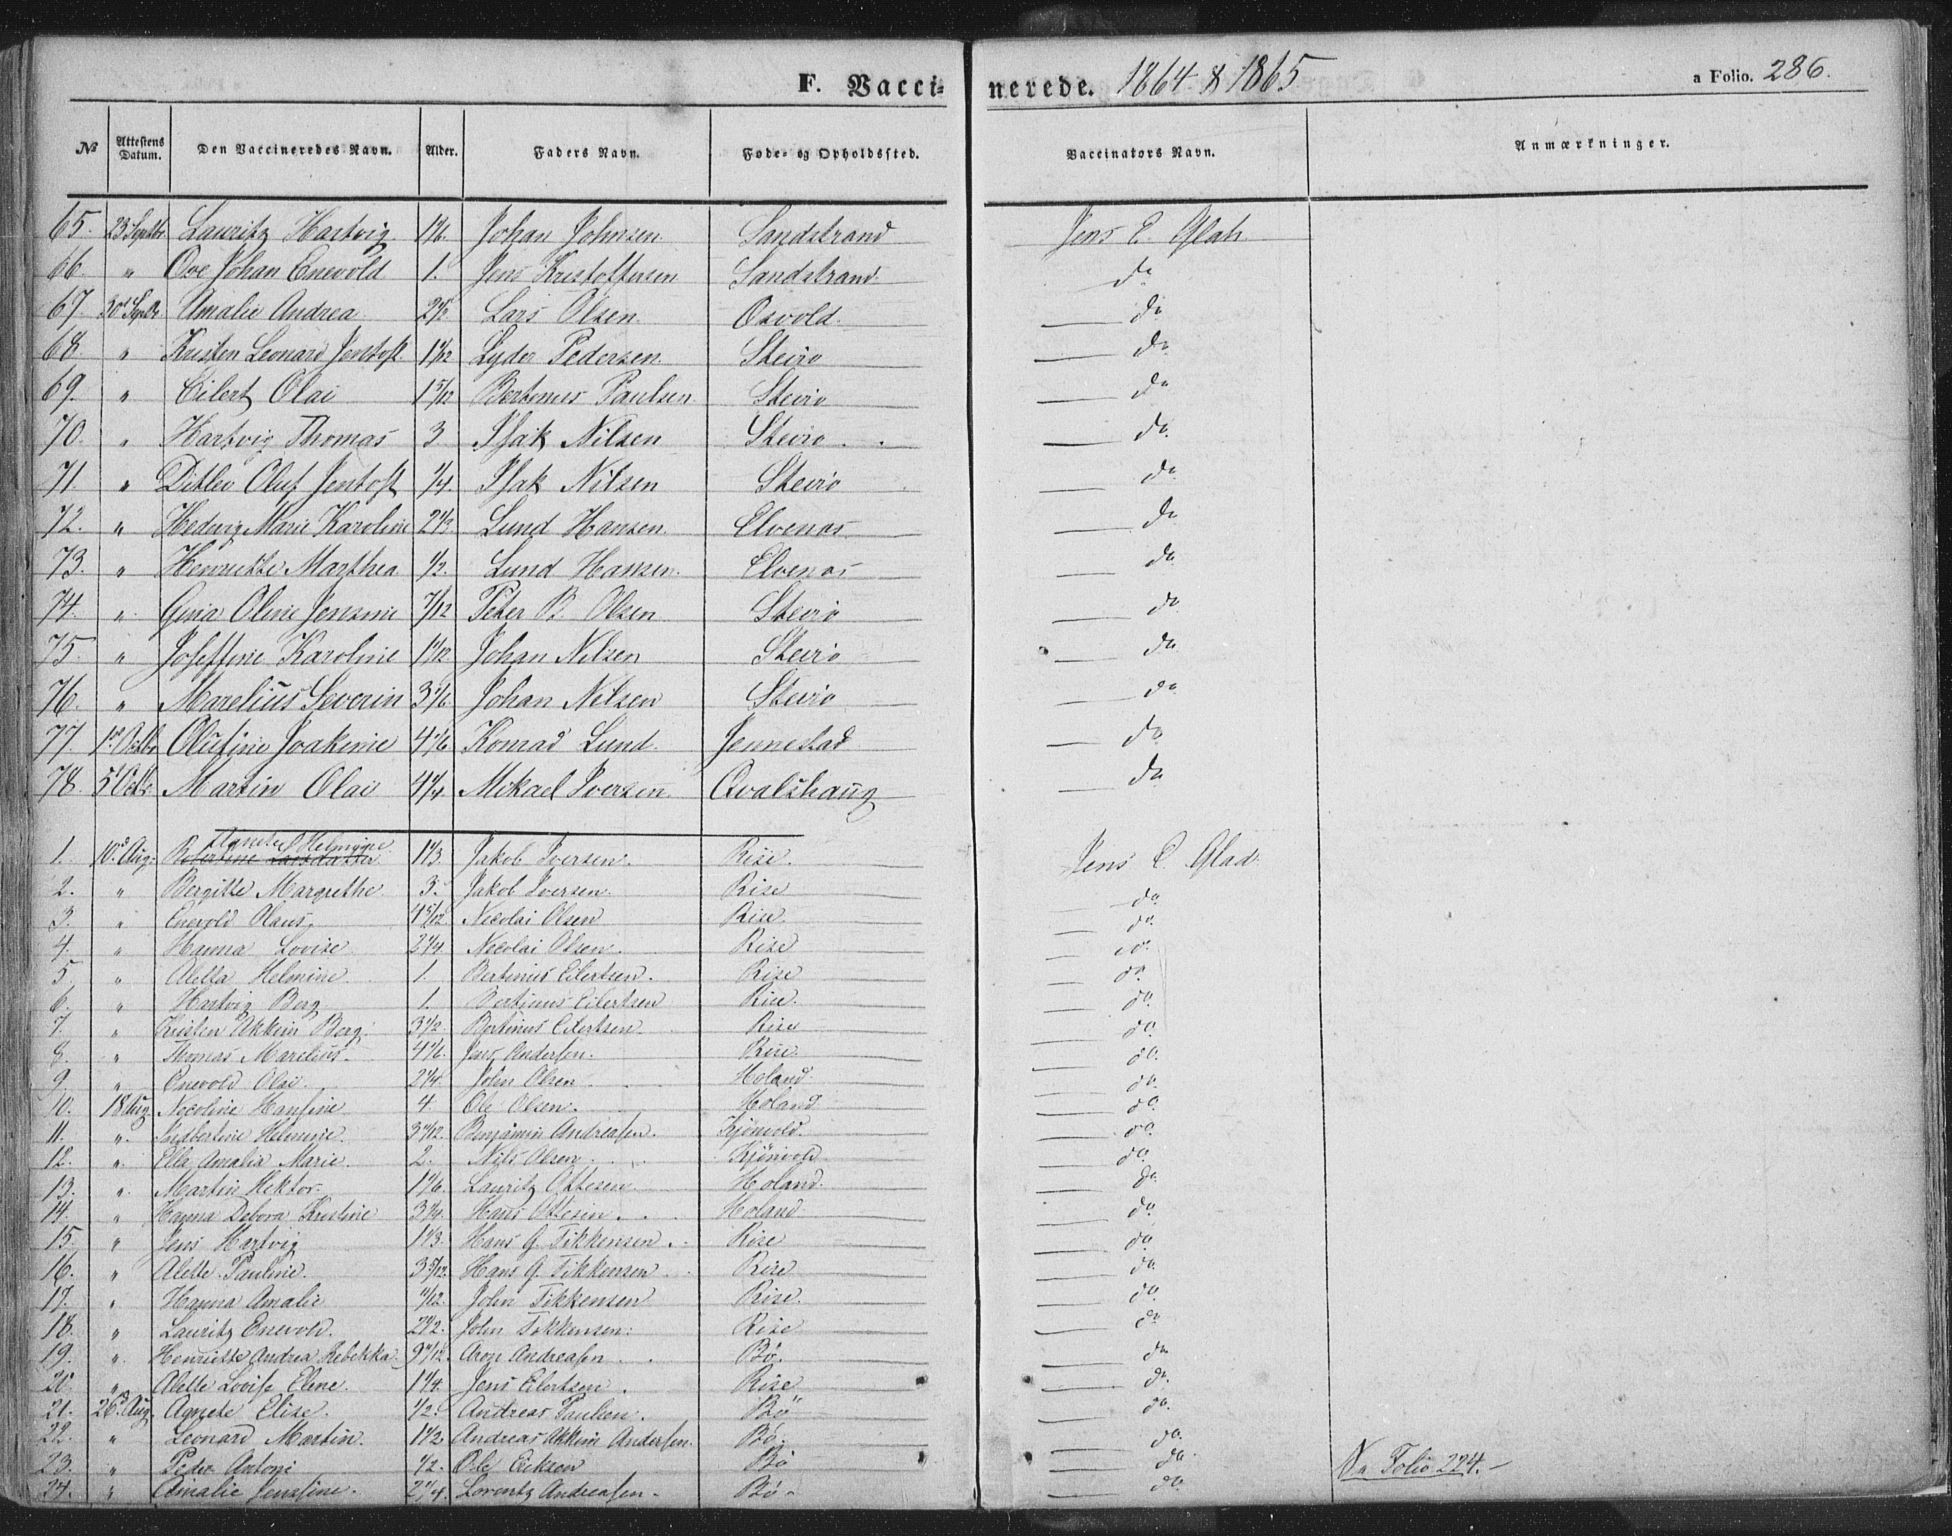 F. Vaccinerede. 1864 & 1865 a Folio. 286.
No Attestens Datum. Den Vaccineredes Navn. Alder. Faders Navn. Føde- og Opholdssted. Vaccinators Navn. Anmærkninger.
65. 23 Septbr Lauritz Hartvig 1 1/6 Johan Johnsen Sandstrand Jens C. Glad
66. " Ove Johan Enevold 1. Jens Kristoffersen Sandstrand do
67. 30 Septbr Amalie Andrea Lars Olsen Osvold do
68. " Kristen Leonard Jentoft Lyder Pedersen Steiro do
69. " Eilert Olai 1 5/12 Bertenus Paulsen Steiro do
70. " Hartvig Thomas 3 Isak Nilsen Steiro do
71. " Ditlev Oluf Jentoft 1/4. Isak Nilsen Steiro do
72. " Hedevig Marie Karoline 2 1/3 Lund Hansen Elvenas do
73. " Henriette Marthea 1/2. Lund Hansen Elvenas do
74. " Gina Oline Jensine 7/12 Peter B. Olsen Steiro do
75. " Joseffine Karoline 1 1/12 Johan Nilsen Steiro do
76. " Marelius Severin 3 1/6 Johan Nilsen Steiro do
77. 1st Octbr Olufine Joakime 4 1/6 Konrad Lund Jennestad do
78. 5t Octb. Martin Olai 4 1/4 Mikael Iversen Qvalshaug do
1. 10d Aug. Helmine 1 1/3. Jakob Iversen. Rise. Jens C. Glad
2. " Bergitte Margrethe 3. Jakob Iversen Rise do
3. " Enevold Olaus 4 5/12 Nicolai Olsen Rise do
4. " Hanna Lovise 2 1/4. Nicolai Olsen. Rise do
5. " Aletta Helmine. 1. Bertinus Eilertsen. Rise do.
6. " Hartvig Berg 1. Bertinus Eilertsen Rise. do
7. " Kristen Akkim Berg 3 1/2. Bertinus Eilertsen Rise do.
8. " Thomas Marelius. 4 1/6. Jens Andersen. Rise do.
9. " Enevold Olai. 2 1/4. John Olsen Holand do.
10. 18 Aug Nicoline Hansine 4 Ole Olsen. Holand do.
11. " Indbertine Helmine. Benjamin Andreasen. Kjönvold. do.
12. " Ella Amalia Marie. 2. Nils Olsen Kjönvold do.
13. " Martin Hektor. 1 1/6. Lauritz Ottesen Holand. do.
14. " Hanna Debora Kristine 3 1/4. Hans Ottesen. Holand do.
15. " Jens Hartvig 1 1/3. Hans G. Fikkensen. Rise do
16. " Alette Pauline. 3 5/12. Hans G. Fikkensen Rise do.
17. " Hanna Amalie John Fikkensen Rise. do.
18. " Lauritz Enevold. 2 1/2. John Fikkensen. Rise do
19. " Henriette Andrea Rebekka Aron Andreasen Bö. do
20. " Alette Lovise Eline. 1 1/4. Jens Eilertsen. Rise do.
21. 26d Aug. Agnete Elise. 1/2. Andreas Paulsen. Bö do.
22. " Leonard Martin. 1 1/2 Andreas Akkim Andersen. Bö. do.
23. " Peder Antoni 1/2. Ole Eriksen Bö do.
24. " Amalie Jensine. 2 1/4. Lorentz Andreasen. Bö. do.
Folio 224.